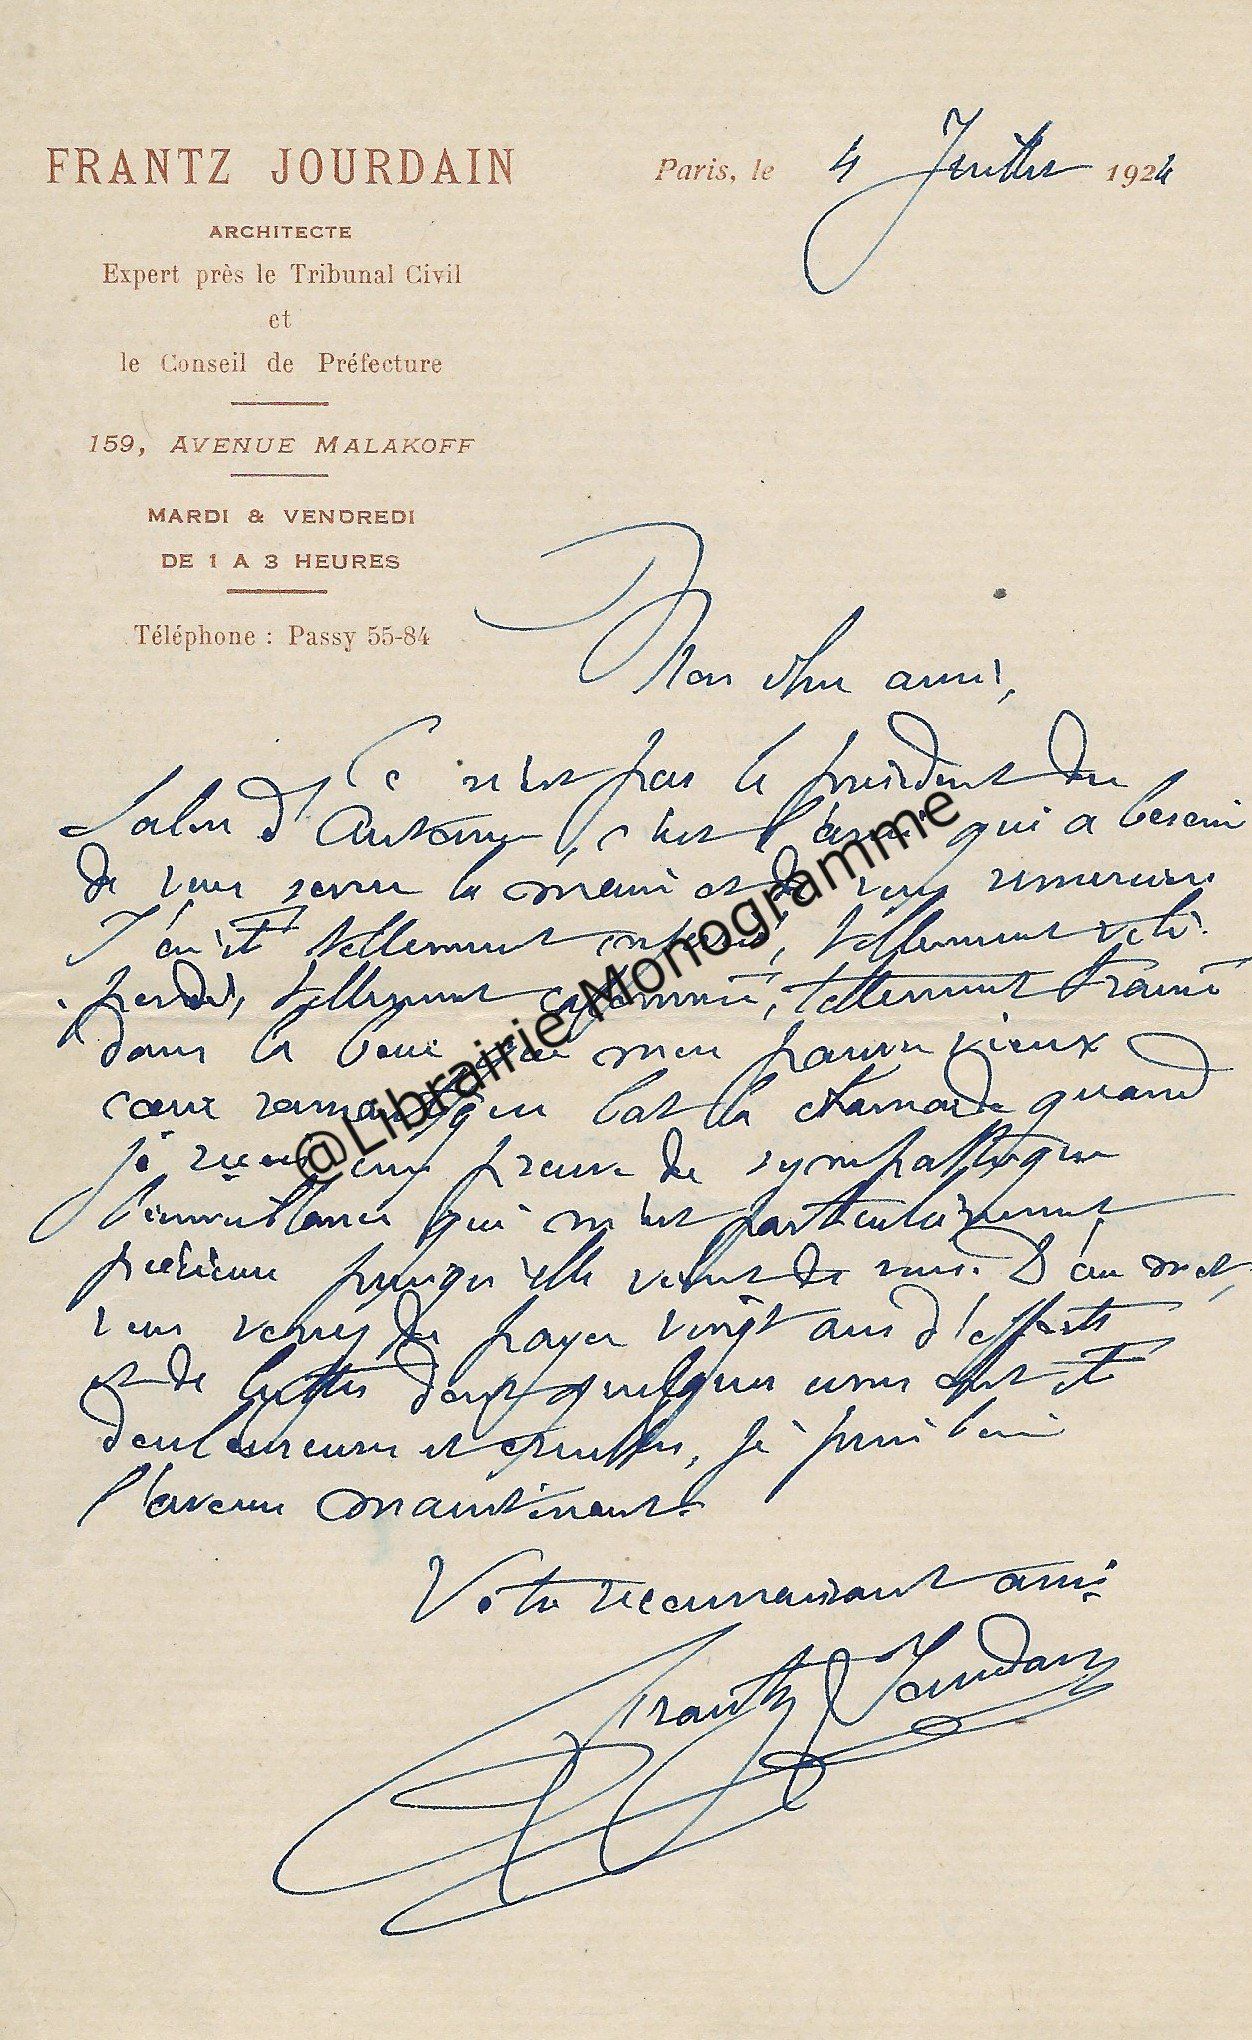 FRANTZ JOURDAIN
ARCHITECTE
Expert près le Tribunal Civil
et
le Conseil de Préfecture
159, AVENUE MALAKOFF
MARDI & VENDREDI
DE 1 A 3 HEURES
Téléphone : Passy 55-84
Paris, le 4 Juillet 1924
Mon cher ami,
Ce n'est pas le président du
Salon d'Automne, c'est l'ami qui a besoin
de vous serrer la main et de vous remercier.
J'ai été tellement tellement vili-
pendé, tellement calomnié, tellement traîné
dans la boue que mon pauvre vieux
cœur romantique bat la chamade quand
je reçois une preuve de sympathique
bienveillance qui m'est particulièrement
précieuse puisqu'elle vient de vous. D'un mot,
vous venez de payer vingt ans d'efforts
et de luttes dont quelques unes ont été
douloureuses et cruelles, je puis bien
l'avouer maintenant.
Votre reconnaissant ami
Frantz Jourdain
@Librairie Monogramme